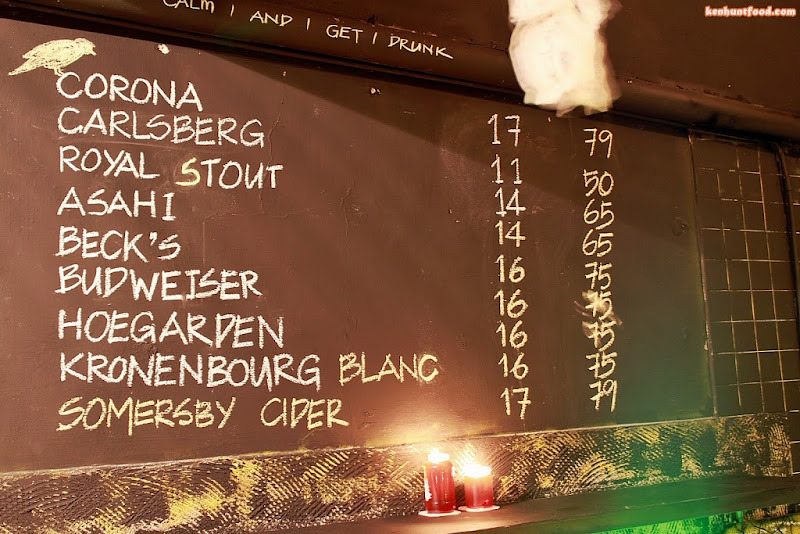 kenhuntfood.com
CALM | AND | GET | DRUNK
CORONA 17 79
CARLSBERG 11 50
ROYAL STOUT 14 65
ASAHI 14 65
BECK'S 16 75
BUDWEISER 16 75
HOEGARDEN 16 75
KRONENBOURG BLANC 16 75
SOMERSBY CIDER 17 79